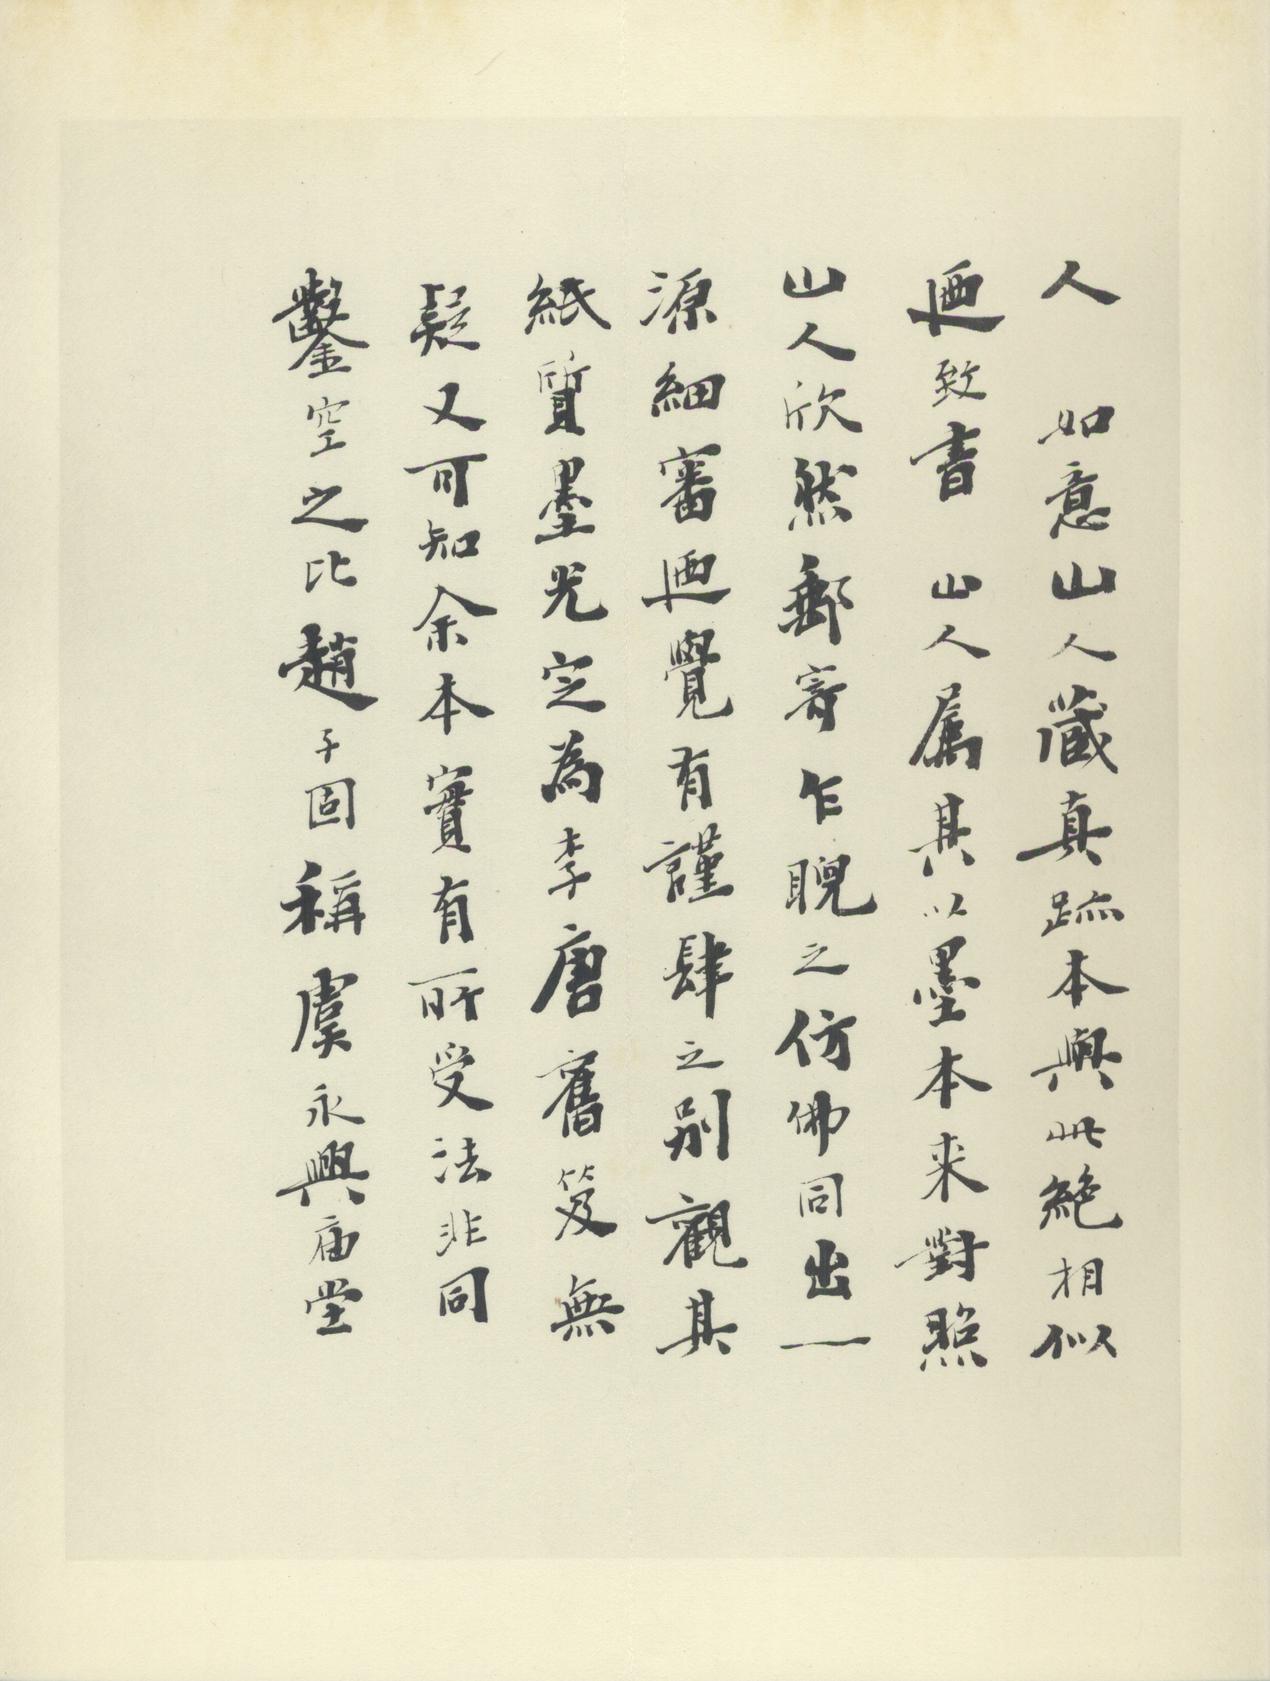 人　如意山人藏真跡本與此絶相似
廼致書　山人属其以墨本来對照
山人欣然郵寄乍睨之仿佛同出一
源細審廼覺有謹肆之別觀其
紙質墨光定為李唐舊笈無
疑又可知余本實有所受法非同
鑿空之比趙子固稱虞永興庙堂